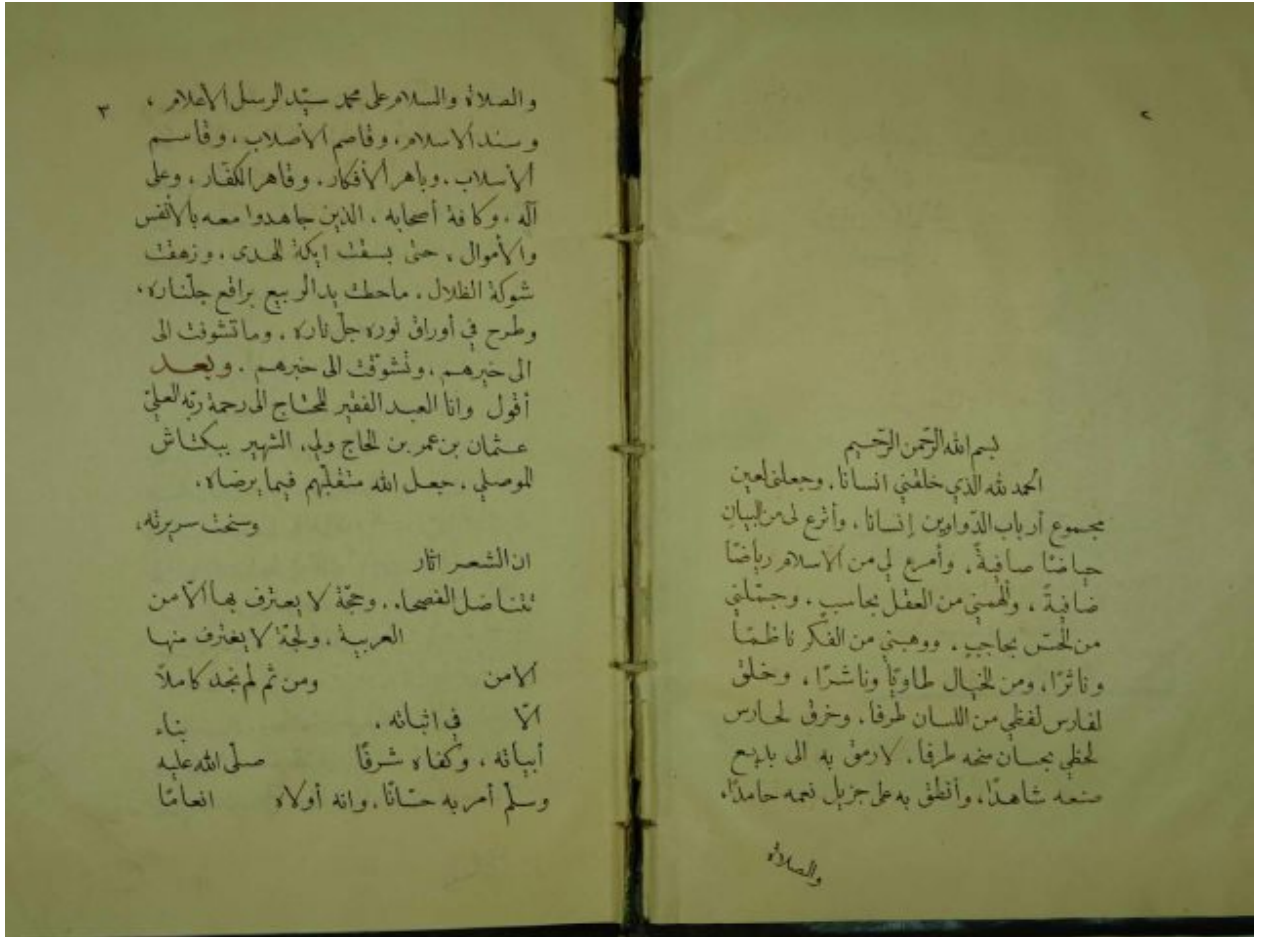 ٢
بسم الله الرّحمن الرّحيم
الحمد لله الذي خلقني انسانا، وجعلني لعين
مجموع أرباب الدّواوين إنسانا، وأترع لي من البيان
حياضًا صافيةً، وأمرع لي من الاسلام رياضًا
ضافيةً، وألهمني من العقل بحاسبٍ، وجمّلني
من الحسّ بحاجبٍ، ووهبني من الفكر ناظمًا
وناثرًا، ومن الخيال طاويًا وناشرًا، وخلق
لفارس لفظي من اللسان طرفا، وخرق لحارس
لحظي بحسان منحه طرفا، لارمق به الى بديع
صنعه شاهدًا، وأنطق به على جزيل نعمه حامدًا،
والصلاة
٣
والصلاة والسلام على محمد سيّد الرسل الأعلام،
وسند الاسلام، وقاصم الأصلاب، وقاسم
الأسلاب، وباهر الأفكار، وقاهر الكفّار، وعلى
آله، وكافة أصحابه، الذين جاهدوا معه بالأنفس
والأموال، حتى بسقت ايكة الهدى، وزهقت
شوكة الظلال، ماحطت يد الربيع براقع جلّناره،
وطرح في أوراق نوره جلّ ناره، وما تشوفت الى
الى خبرهم، وتشوّقت الى خبرهم، وبعد
أقول وانا العبد الفقير المحتاج الى رحمة ربّه العليّ
عثمان بن عمر بن الحاج ولي، الشهير ببكتاش
الموصلي، جعل الله متقلّبهم فيما يرضاه،
وسنحت سريرته،
ان الشعر اثار
تتناضل الفصحاء، وحجّة لا يعترف بها الّا من
العربية، ولجّة لا يغترف منها
الامن ومن ثم لم نجد كاملاً
الّا في اثباته، بناء
أبياته، وكفاه شرفًا صلّى الله عليه
وسلّم أمر به حسّانًا، وانه أولاه انعامًا